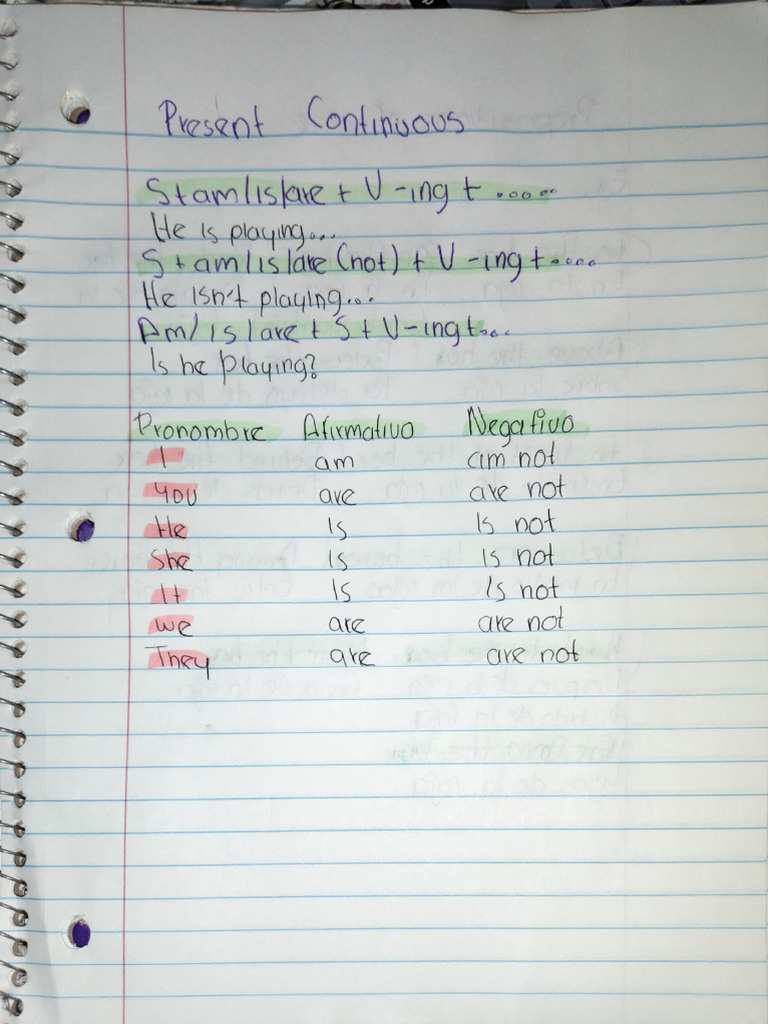 Present Continuous
S+am/is/are + V -ing + .....
He is playing...
S+am/is/are (not) + V -ing +....
He isn't playing...
Am/is/are + S + V-ing+...
Is he playing?
Pronombre Afirmativo Negativo
I am am not
You are are not
He is is not
She is is not
It is is not
we are are not
They are are not